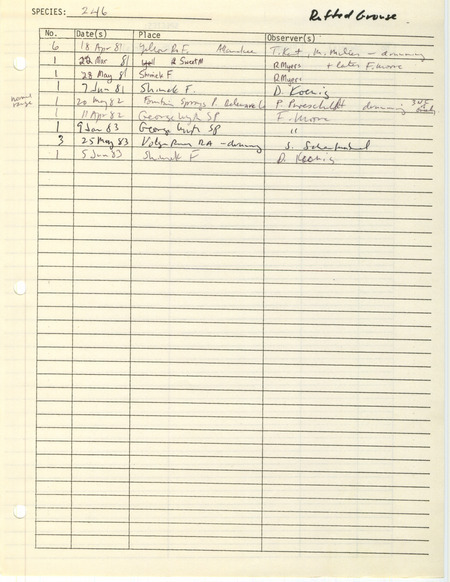 SPECIES: 246 Ruffed Grouse
No. Date(s) Place Observer(s)
6 18 Apr 81 Yellow R. F. Allamakee T. Kent, M. Mueller — drumming
1 22 Mar 81 R Myers + later F. Moore
1 28 May 81 Shimek F R Myers
1 7 Jun 81 Shimek F. D. Koenig
1 20 May 82 Fountain Springs P. Delaware Co P. drumming
1 11 Apr 82 George Wyth SP F. Moore
1 9 Jan 83 George Wyth SP "
3 25 May 83 Volga River RA — drumming S.
1 5 Jun 83 Shimek F D. Koenig